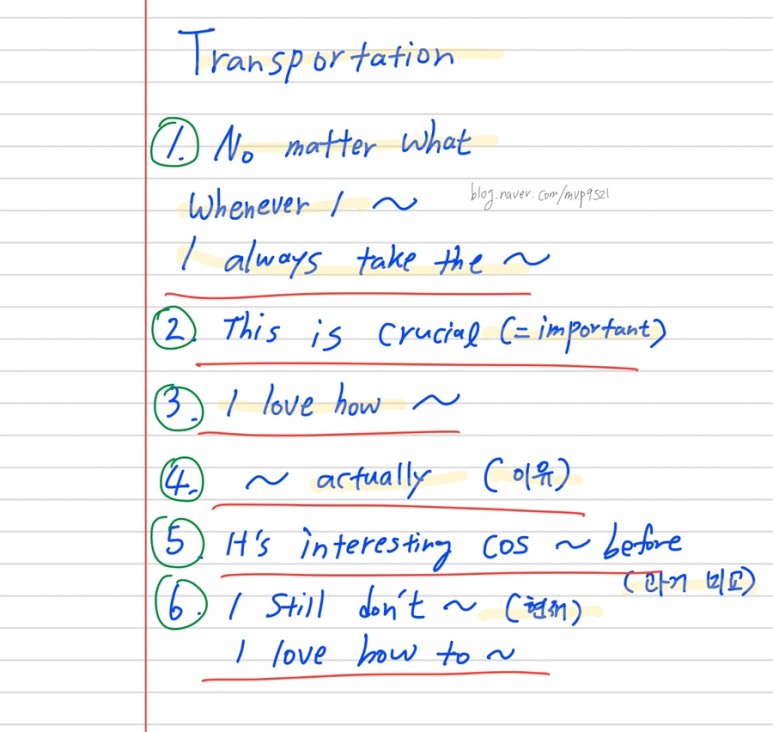 Transportation
1. No matter what
Whenever I ~
blog.naver.com/mvp9521
I always take the ~
2. This is crucial (= important)
3. I love how ~
4. ~ actually (이유)
5. It's interesting cos ~ before
(과거 비교)
6. I still don't ~ (현재)
I love how to ~